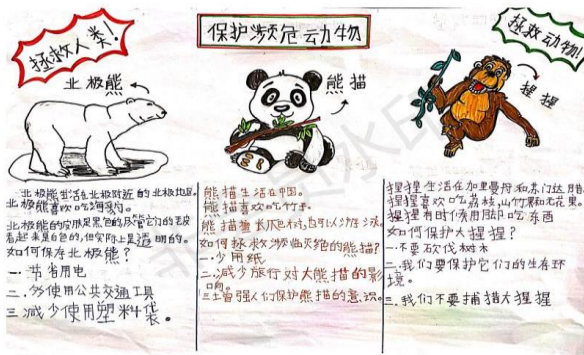 拯救人类!
保护濒危动物
拯救动物!
北极熊
熊猫
猩猩
北极熊生活在北极附近的北极地区。
北极熊喜欢吃海豹。
北极熊的皮肤是黑色的,尽管它们的毛皮
看起来是白色的,但实际上是透明的。
如何保存北极熊?
一.节省用电
二.多使用公共交通工具
三.减少使用塑料袋。
熊猫生活在中国。
熊猫喜欢吃竹子。
熊猫擅长爬树,也可以游泳。
如何拯救濒临灭绝的熊猫?
一.少用纸
二.减少旅行对大熊猫的影
响。
三.增强人们保护熊猫的意识。
猩猩生活在加里曼丹和苏门达腊
猩猩喜欢吃荔枝,山竹果和无花果。
猩猩有时候用脚吃东西
如何保护大猩猩?
一.不要砍伐树木
二.我们要保护它们的生存环
境。
三.我们不要捕猎大猩猩